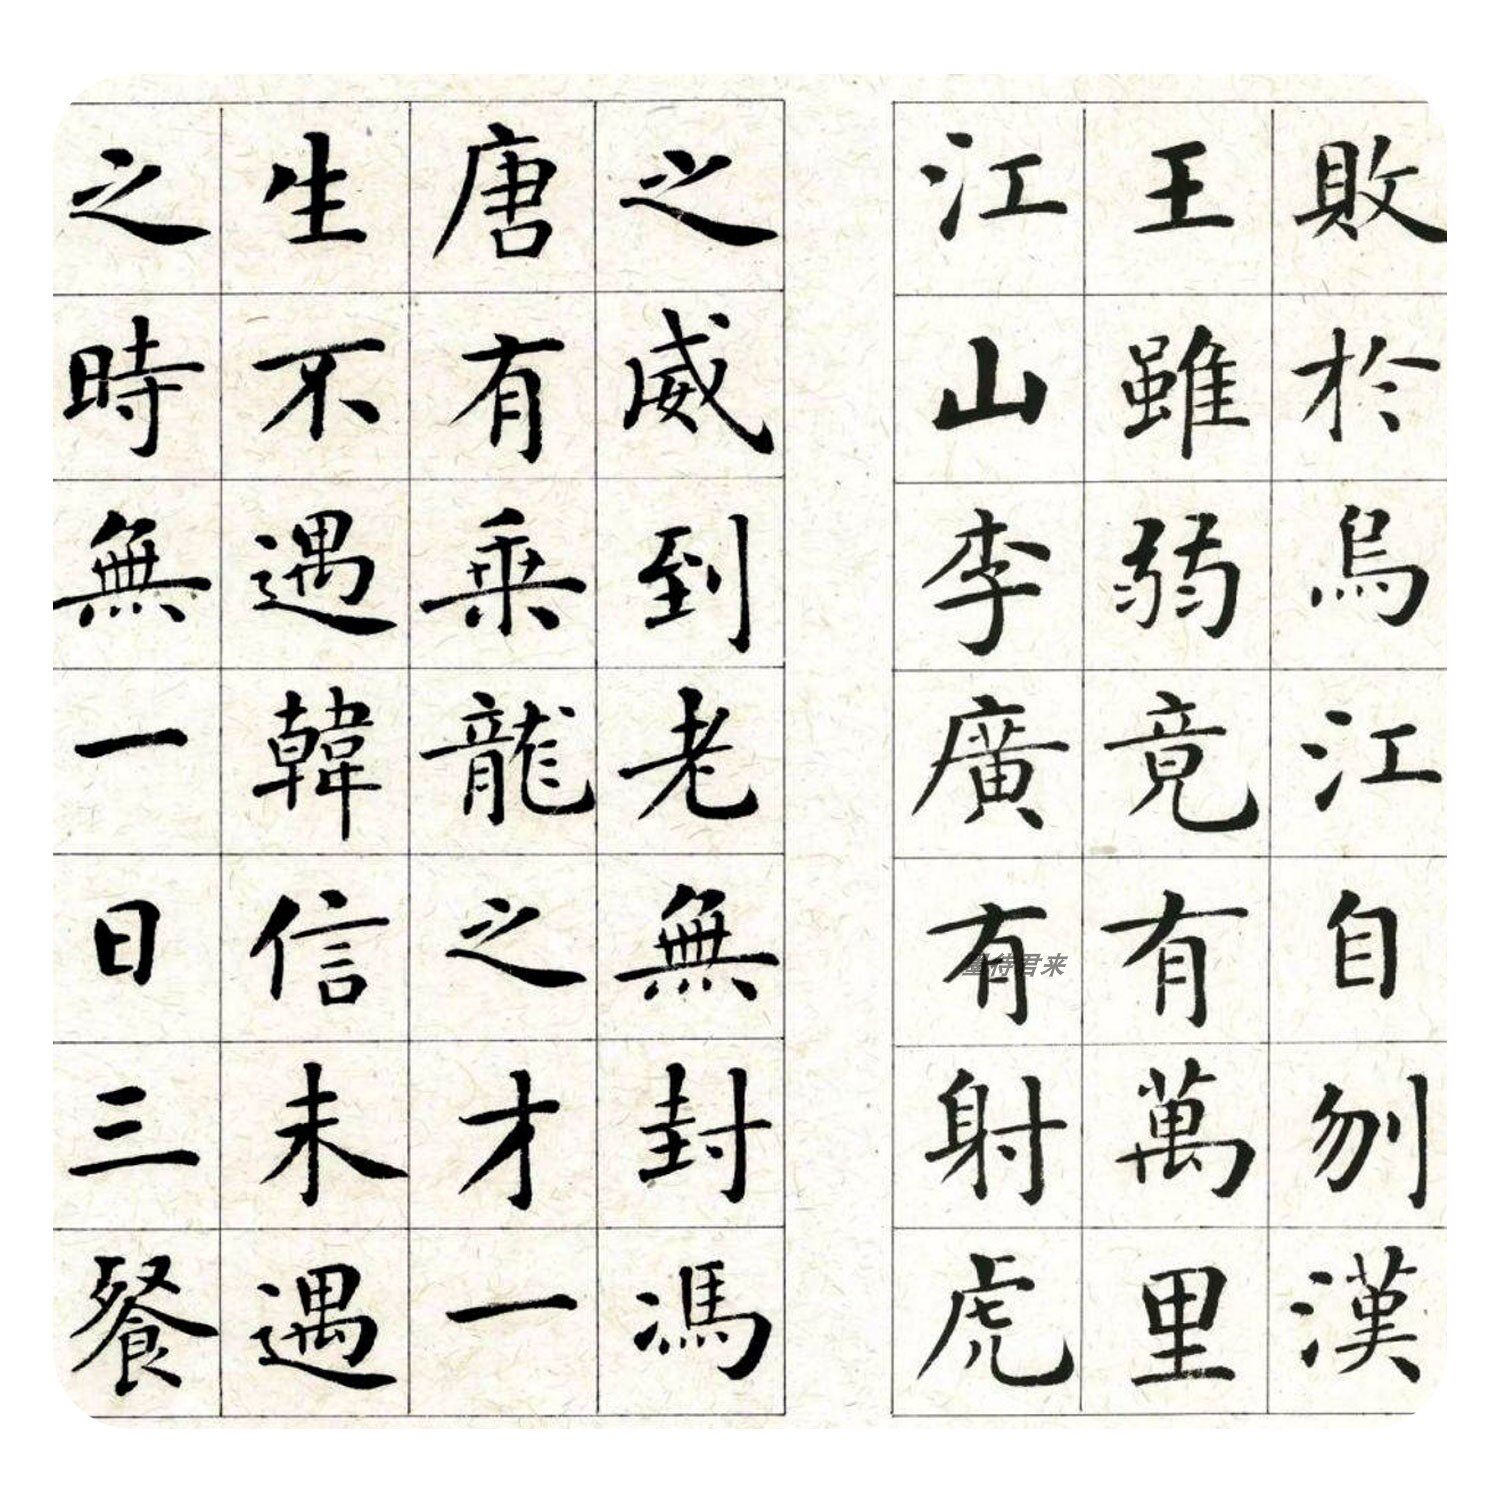 敗於烏江自刎漢
王雖弱竟有萬里
江山李廣有射虎
之威到老無封馮
唐有乗龍之才一
生不遇韓信未遇
之時無一日三餐
待君来